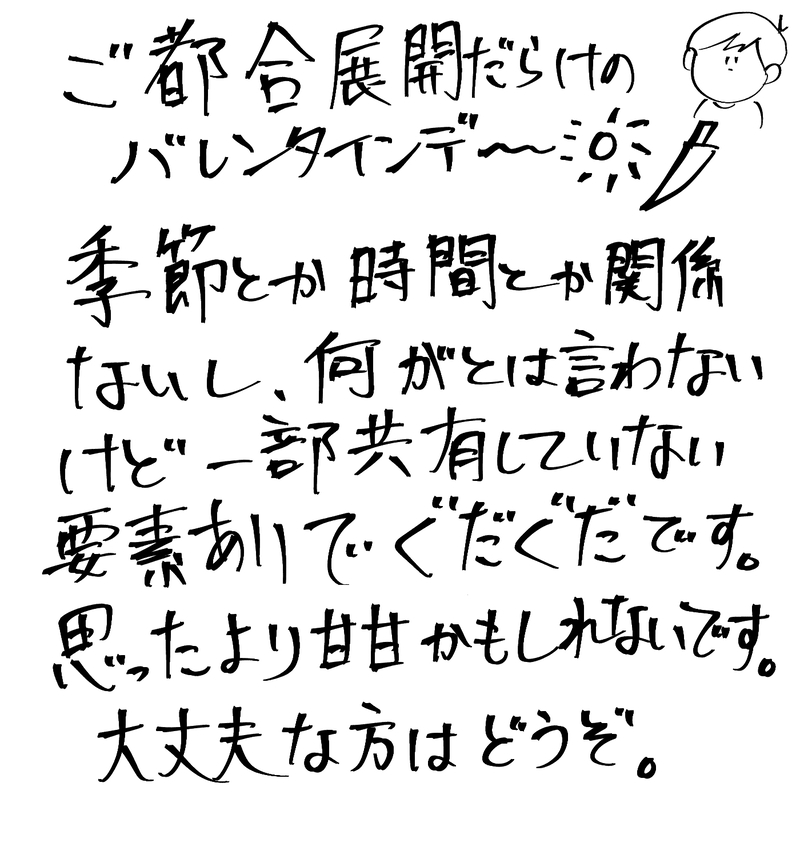 ご都合展開だらけの
バレンタインデ〜
季節とか時間とか関係
ないし、何がとは言わない
けど一部共有していない
要素ありでぐだぐだです。
思ったより甘甘かもしれないです。
大丈夫な方はどうぞ。